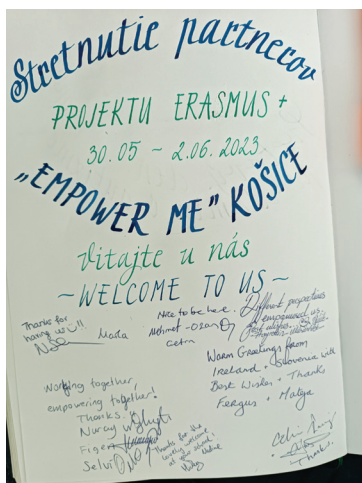 Stretnutie partnerov
PROJEKTU ERASMUS +
30.05 - 2.06.2023
„EMPOWER ME" KOŠICE
Vitajte u nás
~WELCOME TO US~
Thanks for
having us
Maša
Nice to be here.
Mehmet - Ozan
Cetin
Different perspectives
empowered us.
Best wishes
Warm Greetings from
Ireland + Slovenia with
Best Wishes + Thanks
Fergus + Matija
Working together,
empowering together!
Thanks!
Nuray
Figen
Selvi
Thanks for the
welcome
at your school!
Thanks!